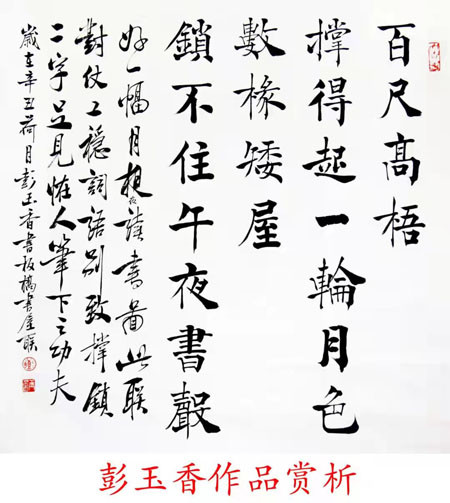 百尺髙梧
撐得起一輪月色
數椽矮屋
鎖不住午夜書聲
好一幅月夜讀書圖此联
對仗工穩詞語別致撐鎖
二字足見怪人筆下之功夫
歲在辛丑荷月彭玉香書板橋書屋联
彭玉香作品赏析